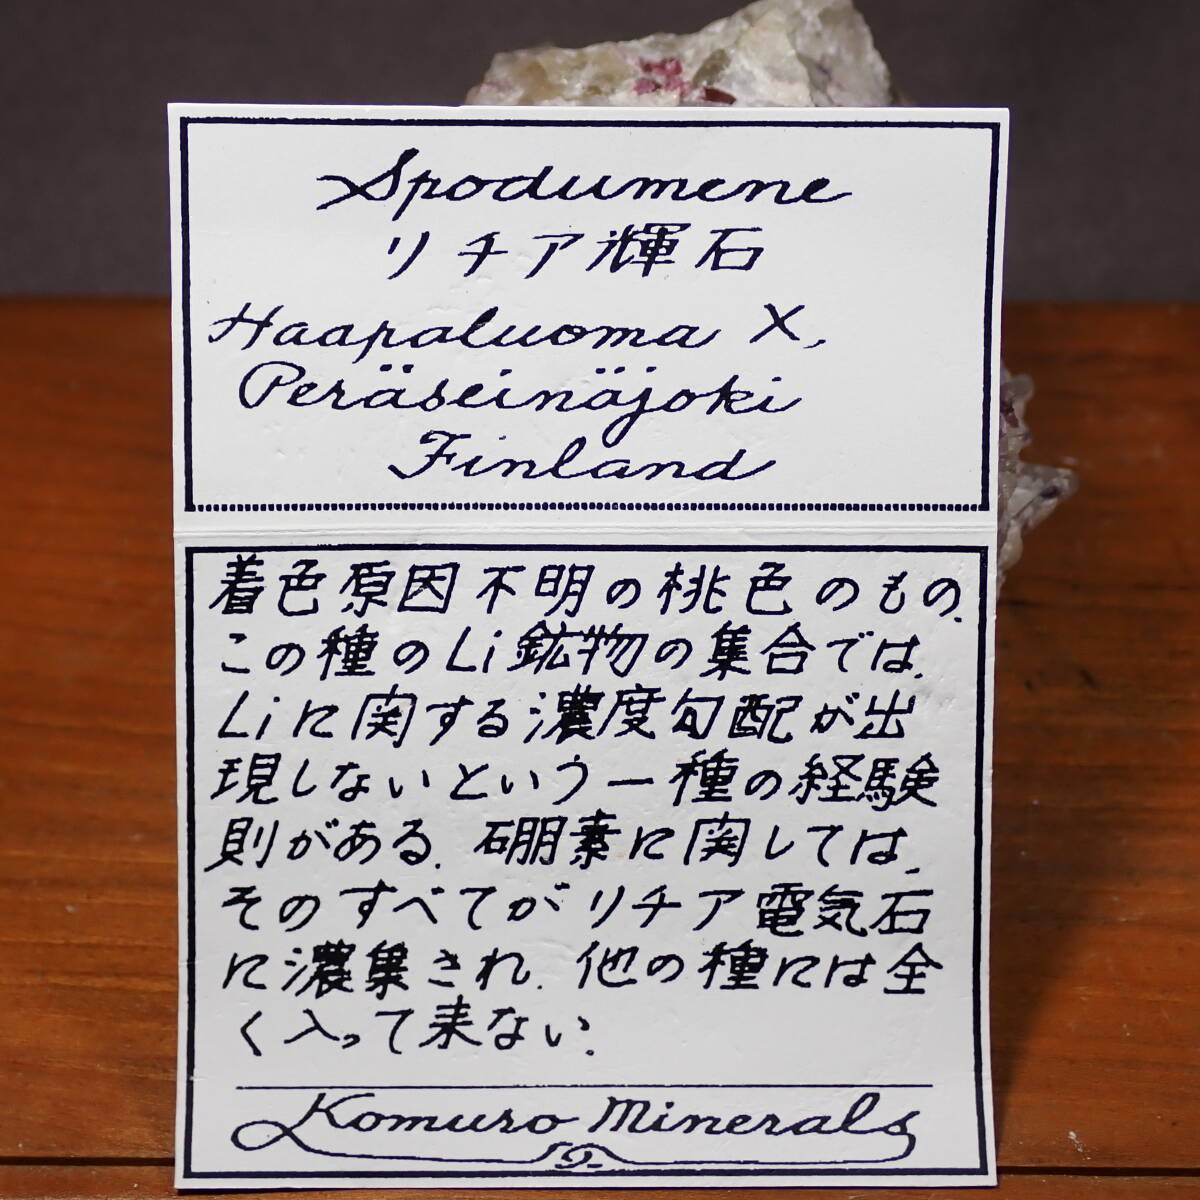 Spodumene
リチア輝石
Haapaluoma X,
Peräseinäjoki
Finland
着色原因不明の桃色のもの.
この種のLi鉱物の集合では,
Liに関する濃度勾配が出
現しないという一種の経験
則がある. 硼素に関しては,
そのすべてがリチア電気石
に濃集され. 他の種には全
く入って来ない.
Komuro Minerals